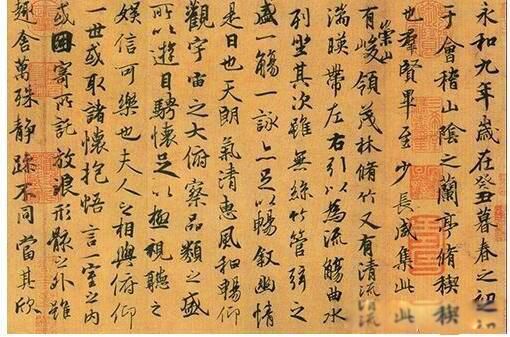 永和九年歲在癸丑暮春之初
于會稽山陰之蘭亭脩稧
也羣賢畢至少長咸集此
有崇山峻領茂林脩竹又有清流
湍暎帶左右引以為流觴曲水
列坐其次雖無絲竹管弦之
盛一觴一詠亦足以暢叙幽情
是日也天朗氣清惠風和暢仰
觀宇宙之大俯察品類之盛
所以遊目騁懷足以極視聽之
娛信可樂也夫人之相與俯仰
一世或取諸懷抱悟言一室之內
或因寄所託放浪形骸之外雖
趣舍萬殊靜躁不同當其欣